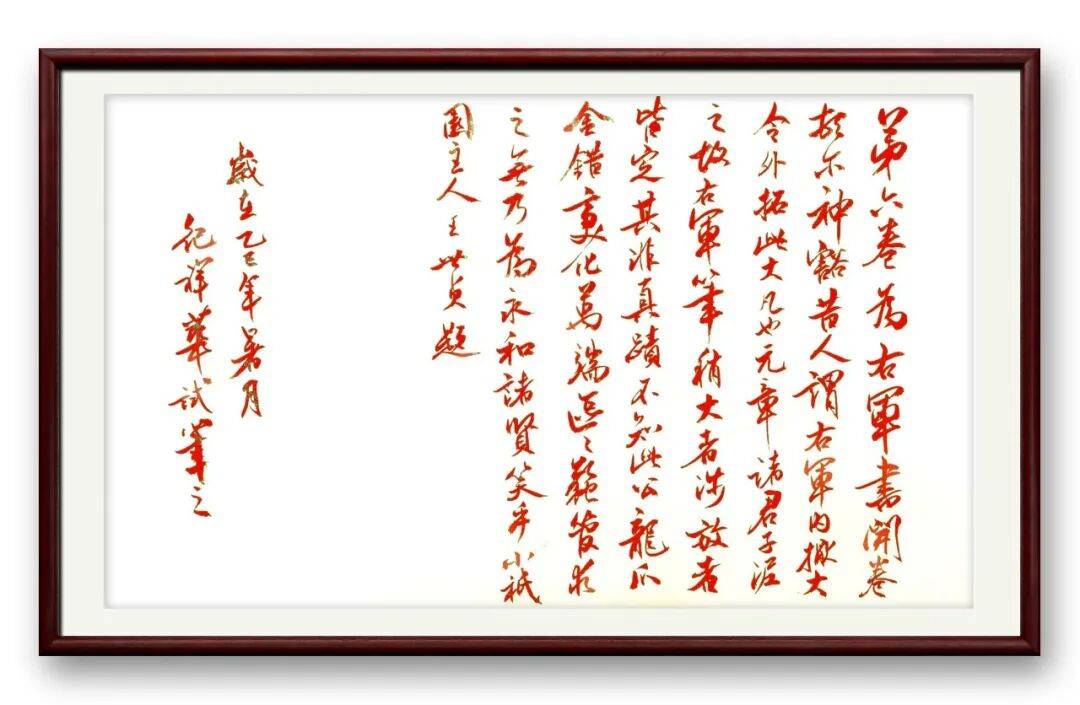 第六卷為右軍書開卷
頓尔神豁昔人謂右軍内擫大
令外拓此大凡也元章諸君子泥
之故右軍筆稍大者涉放者
皆定其非真蹟不知此公龍爪
金錯变化萬端區〻蠡管求
之無乃為永和諸賢笑乎小祇
園主人王世贞題
歲在乙巳年暑月
紀祥華試筆之